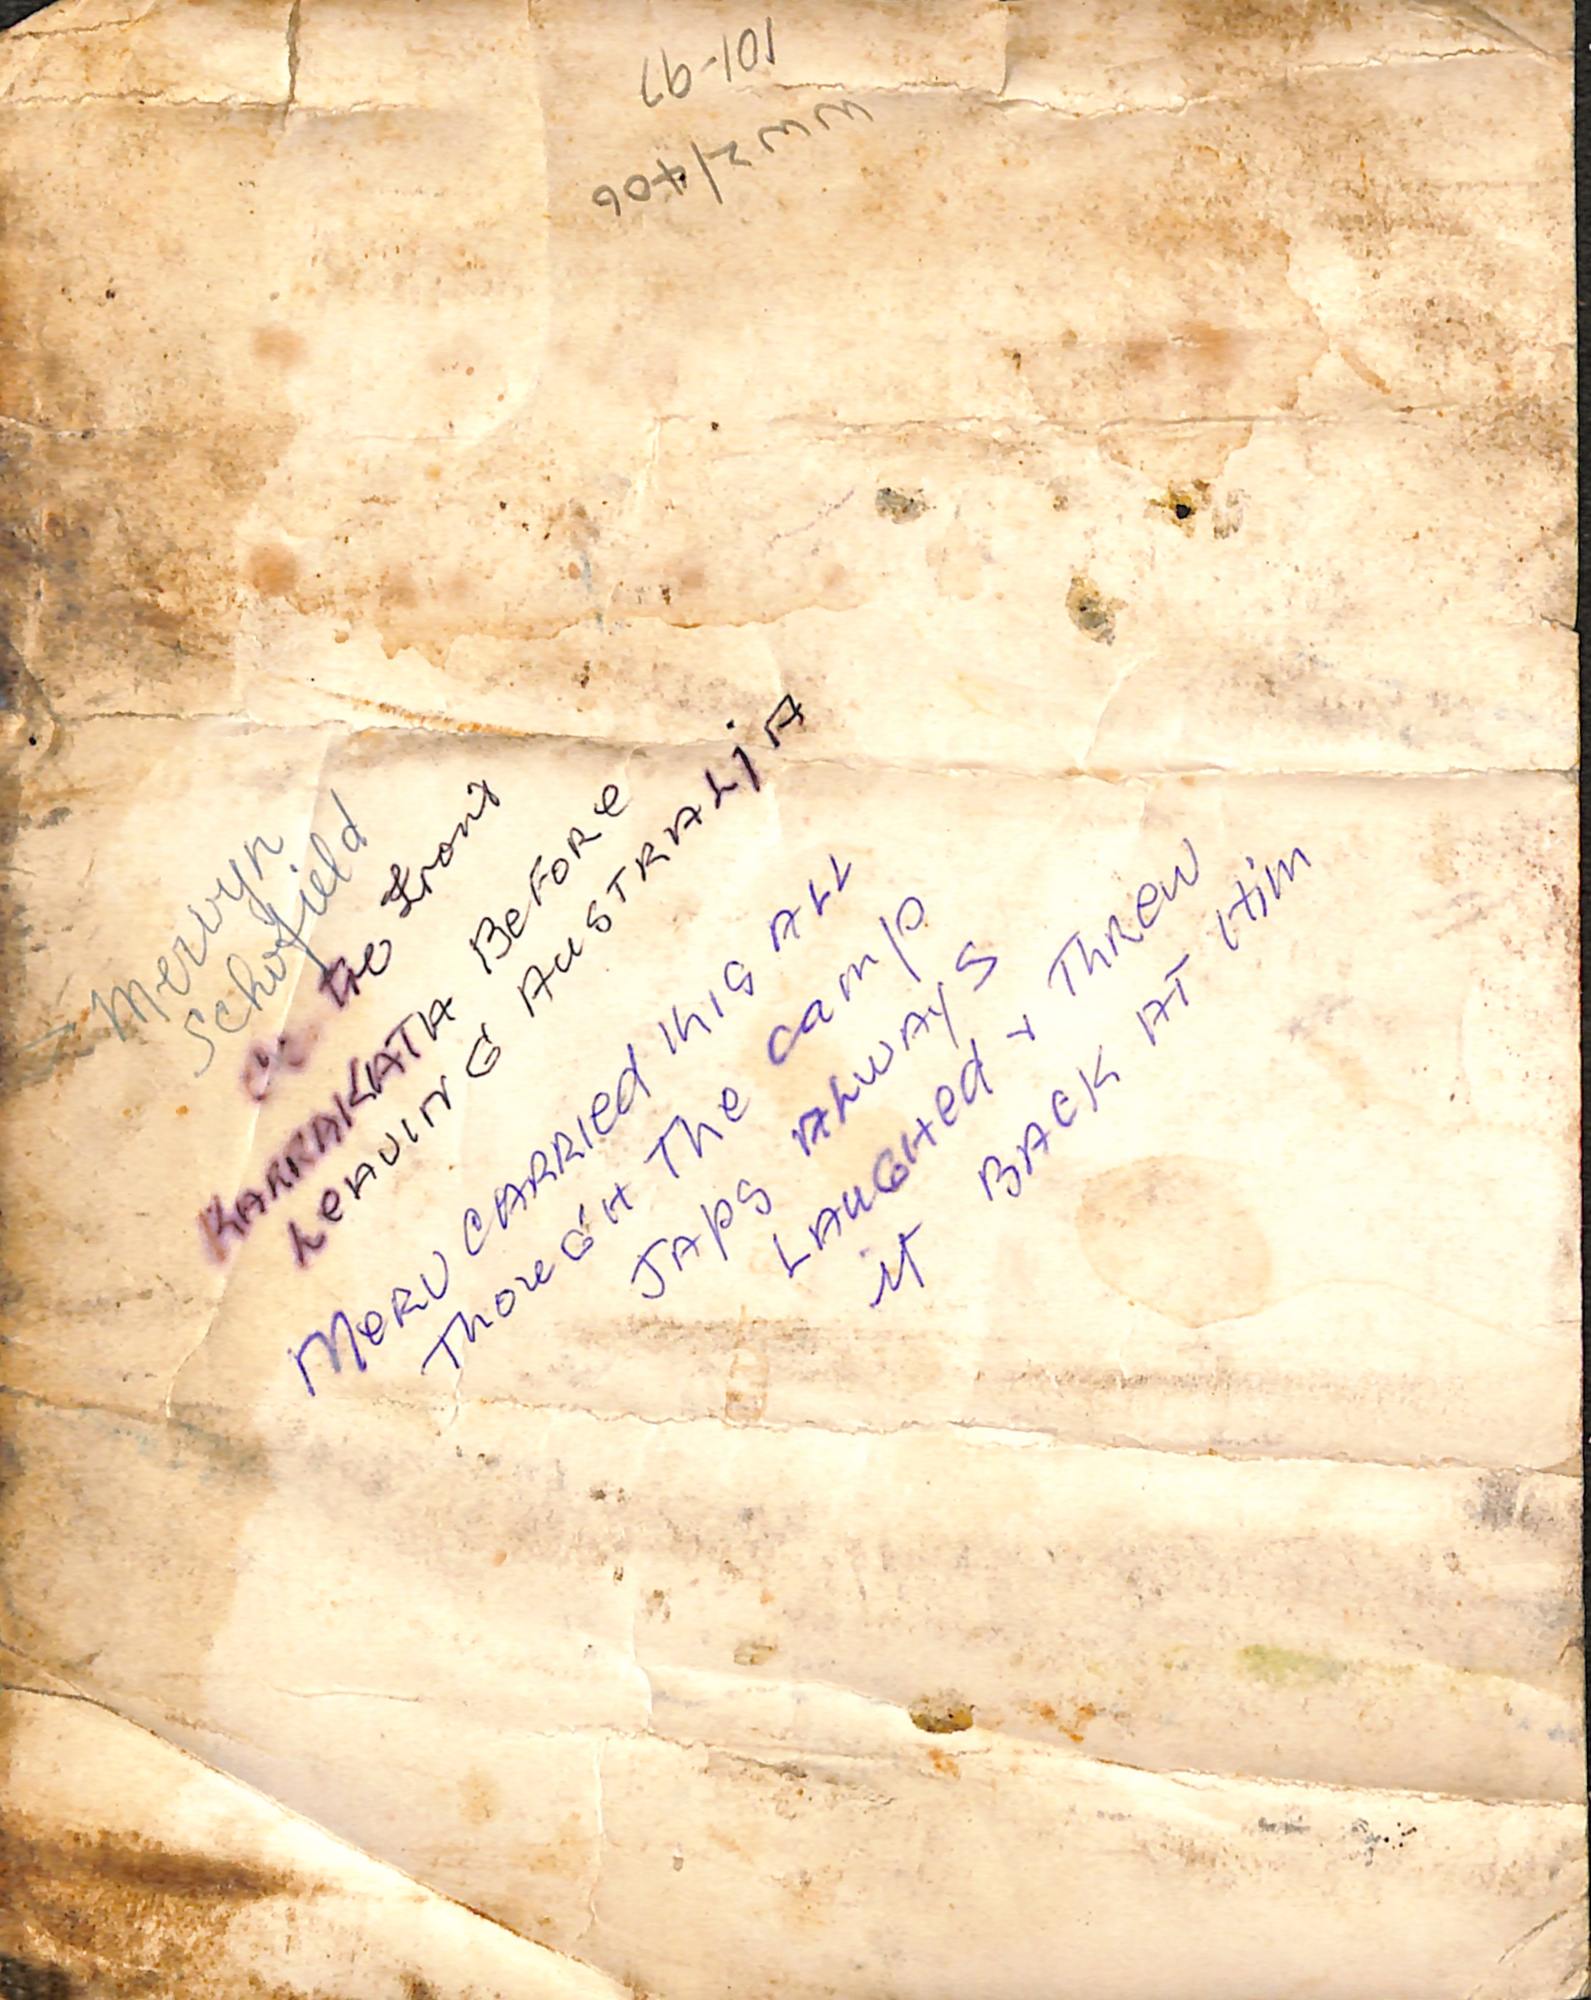 WW2/406
101-97
Mervyn
Schofield
the Front
KARRAKATA BeFORe
LeAVING AUSTRALiA
MeRV CARRIed this ALL
ThoueGH The camp
JAPS ALWAYS
LAUGHed + ThReW
it BACK AT Him